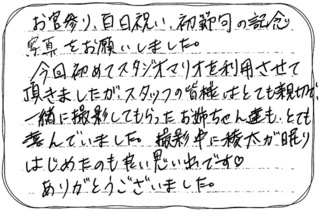 お宮参り、百日祝い、初節句の記念
写真をお願いしました。
今回初めてスタジオマリオを利用させて
頂きましたが、スタッフの皆様はとても親切で、
一緒に撮影してもらったお姉ちゃん達も、とても
喜んでいました。撮影中に稜太が眠り
はじめたのも良い思い出です♡
ありがとうございました。